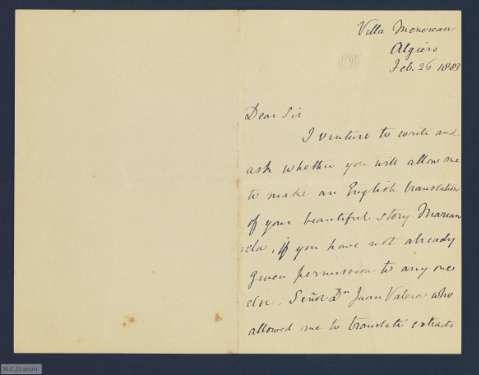 Villa Monorean
Algiers
Feb. 26 1883
Dear Sir
I venture to write and
ask whether you will allow me
to make an English translation
of your beautiful story Marian
ela, if you have not already
given permission to any one
else. Señor Dn Juan Valera who
allowed me to translate extracts